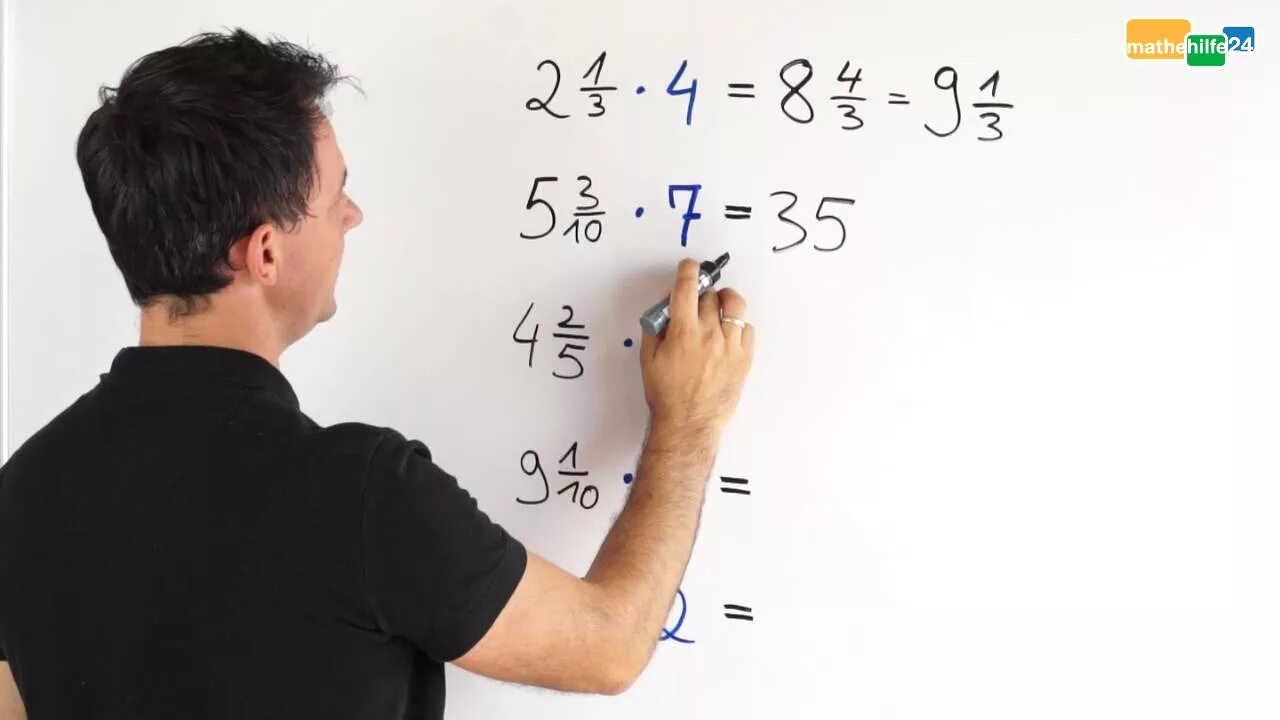 mathehilfe24
2 1/3 · 4 = 8 4/3 = 9 1/3
5 3/10 · 7 = 35
4 2/5 ·
9 1/10 · =
2 =